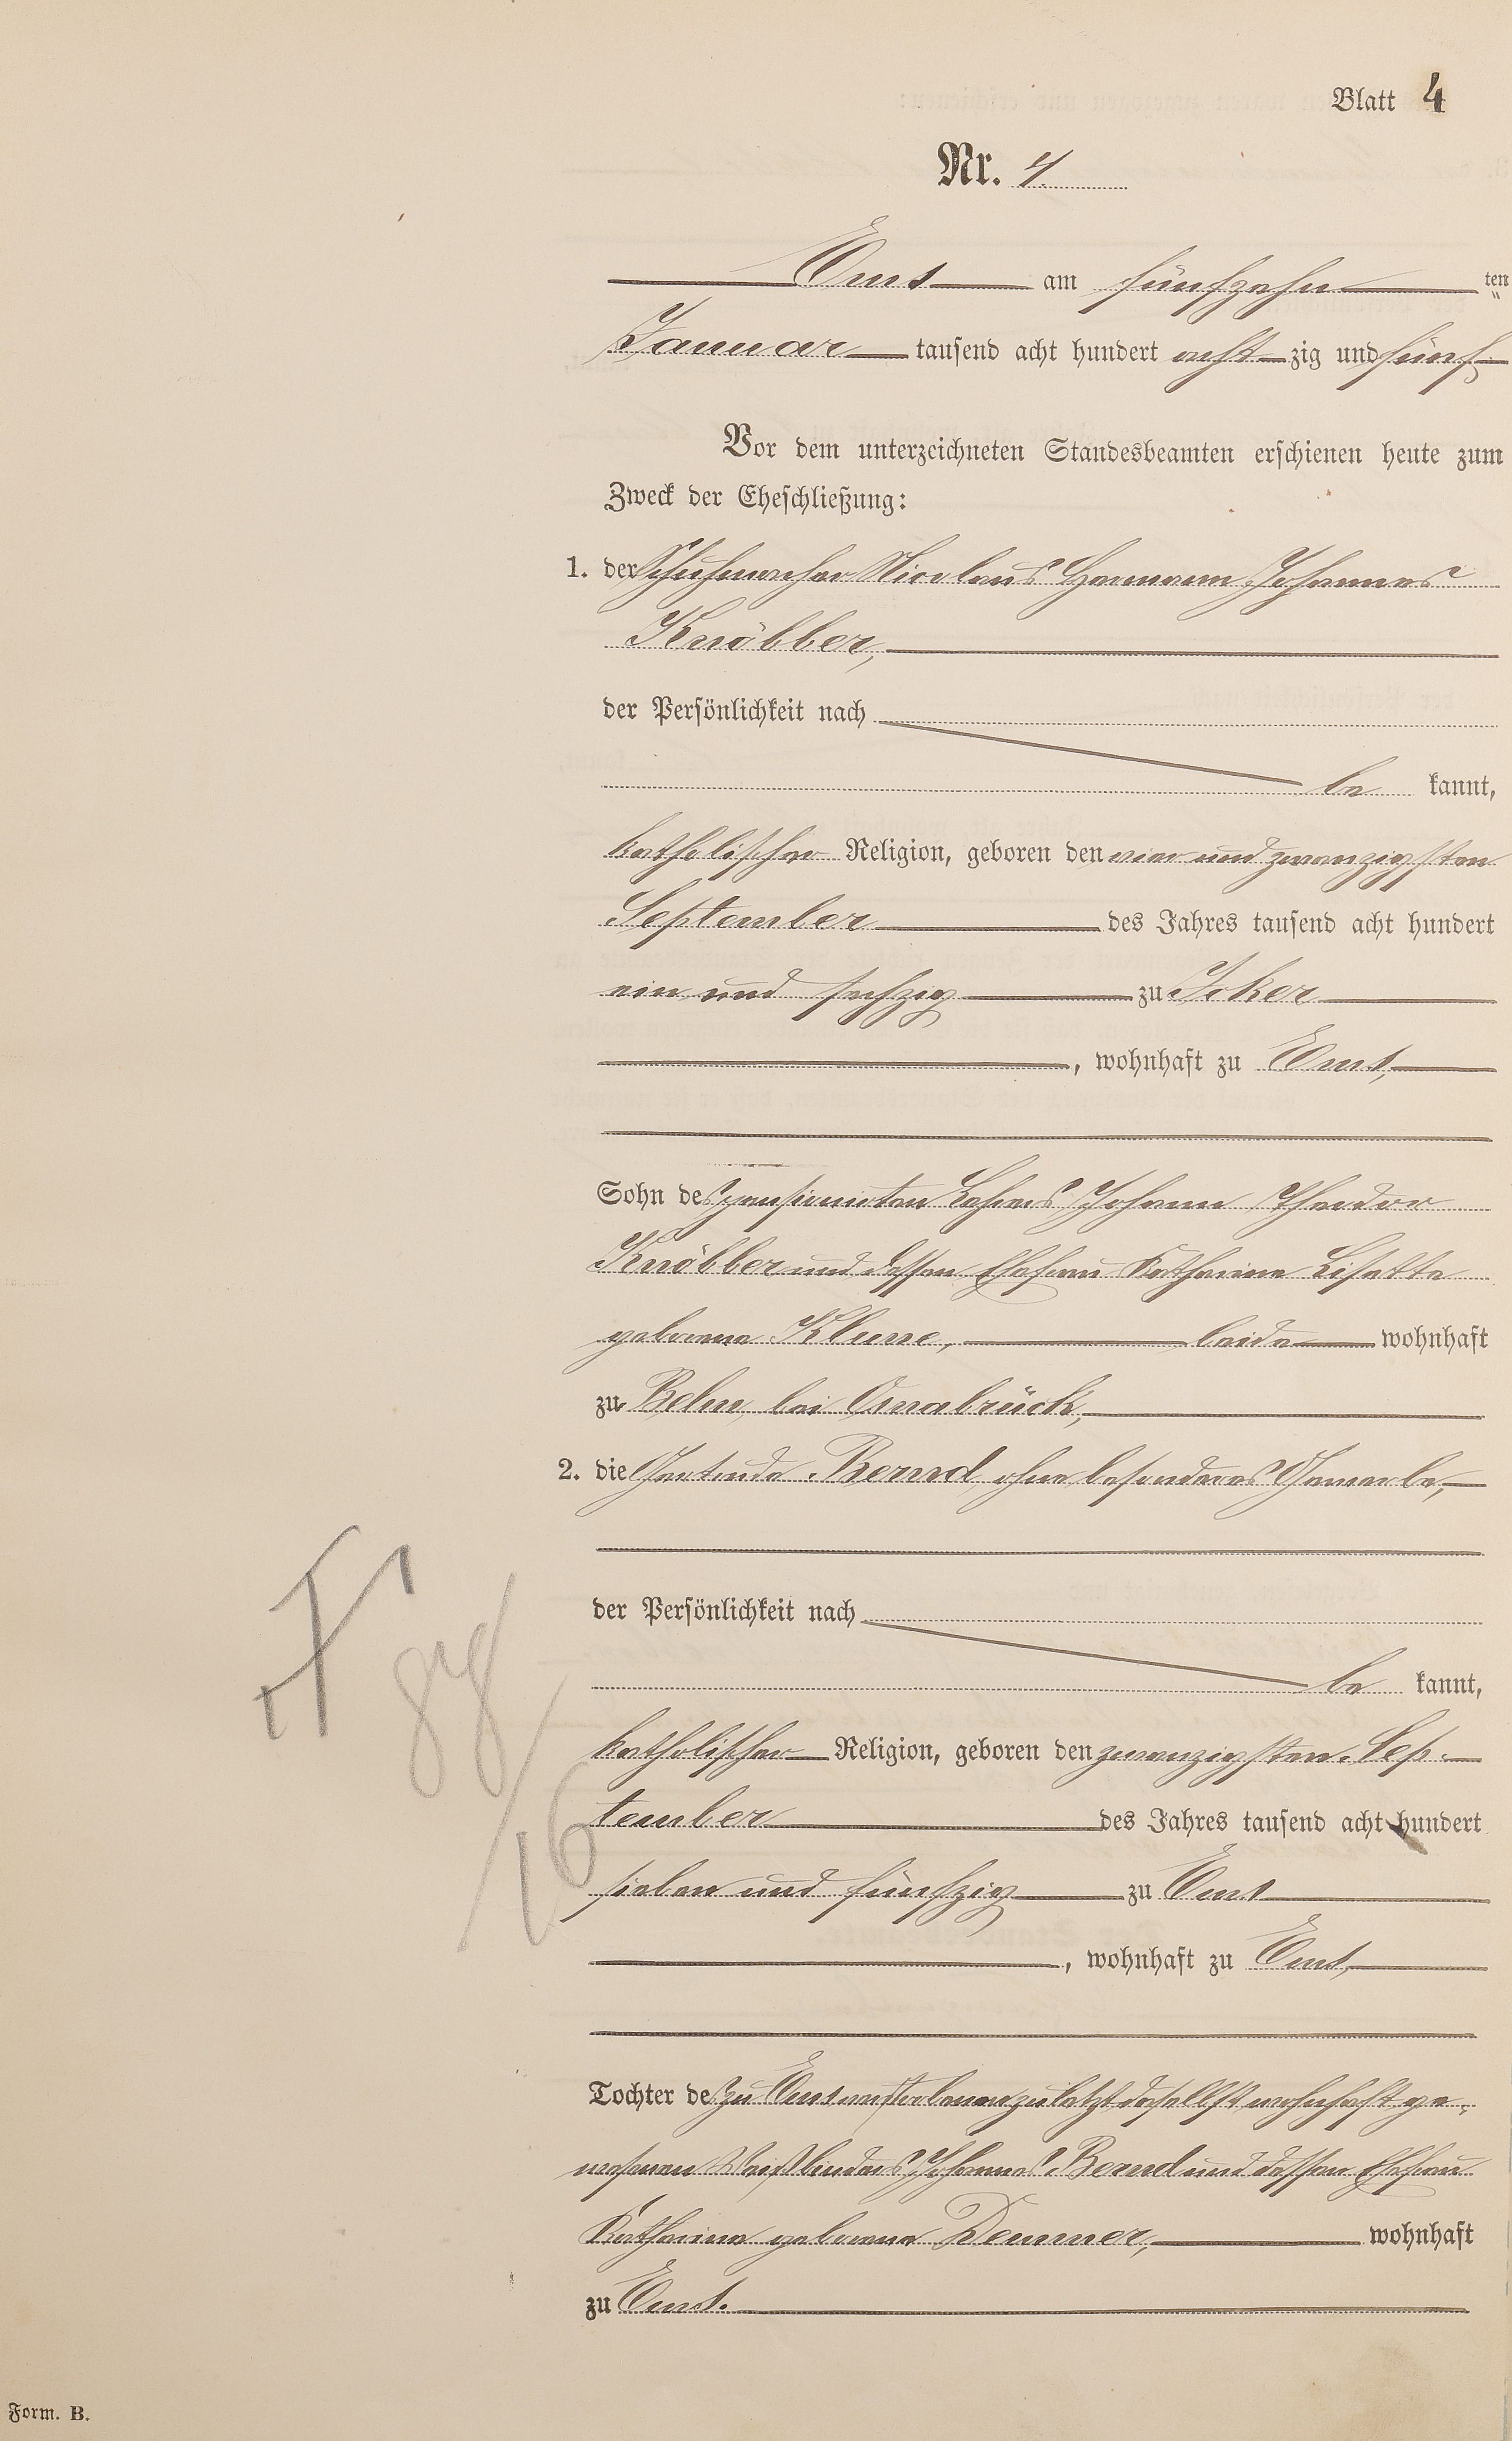 Blatt 4
Nr. 4.
Ems am fünfzehn ten
Januar tausend acht hundert acht zig und fünf
Vor dem unterzeichneten Standesbeamten erschienen heute zum
Zweck der Eheschließung:
1. der Schuhmacher Nicolaus Hermann Johannes
Knöbber,
der Persönlichkeit nach
be kannt,
katholischer Religion, geboren den vier und zwanzigsten
September des Jahres tausend acht hundert
ein und sechzig zu Icker
, wohnhaft zu Ems,
Sohn des pensionirten Lehrers Johann Theodor
Knöbber und dessen Ehefrau Katharina Lisette
geborene Klune, beide wohnhaft
zu Belm bei Osnabrück,
2. die Gertrude Bernd, ohne besonderes Gewerbe,
der Persönlichkeit nach
be kannt,
katholischer Religion, geboren den zwanzigsten Sep-
tember des Jahres tausend acht hundert
sieben und fünfzig zu Ems
, wohnhaft zu Ems,
Tochter des zu Ems verstorbenen zuletzt daselbst wohnhaft ge-
wesenen Weißbinders Johannes Bernd und dessen Ehefrau
Katharina geborene Demmer, wohnhaft
zu Ems.
Form. B.